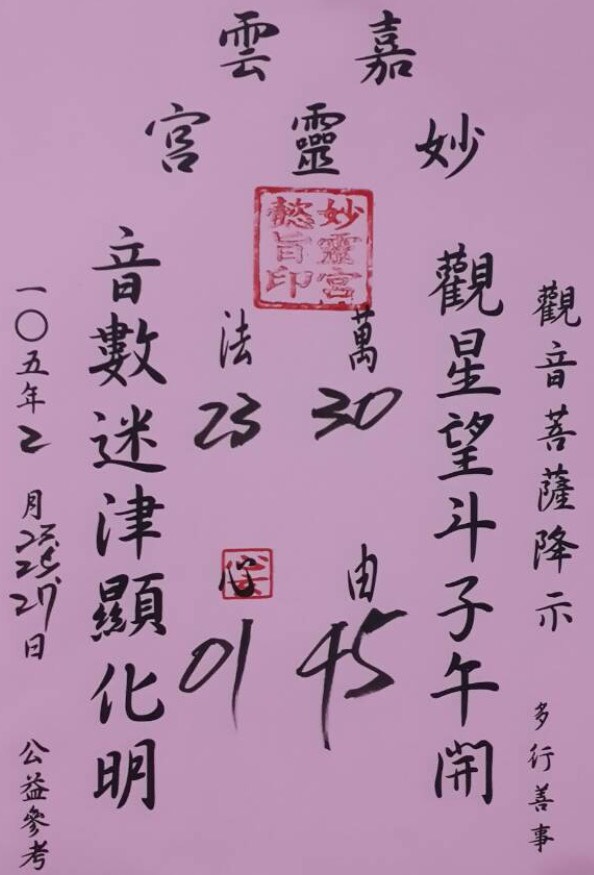 嘉雲
妙靈宮
妙靈宮
懿旨印
觀音菩薩降示 多行善事
觀星望斗子午開
萬 30 由 45
法 23 心 01
音數迷津顯化明
一〇五年2月23 25 27日 公益參考